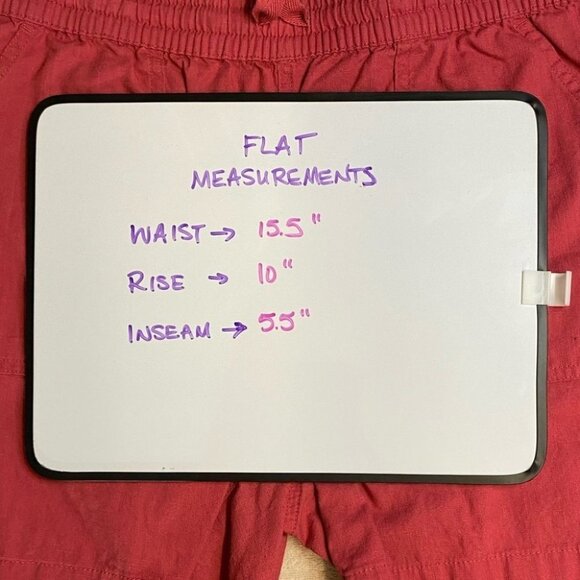 FLAT
MEASUREMENTS
WAIST → 15.5"
RISE → 10"
INSEAM → 5.5"